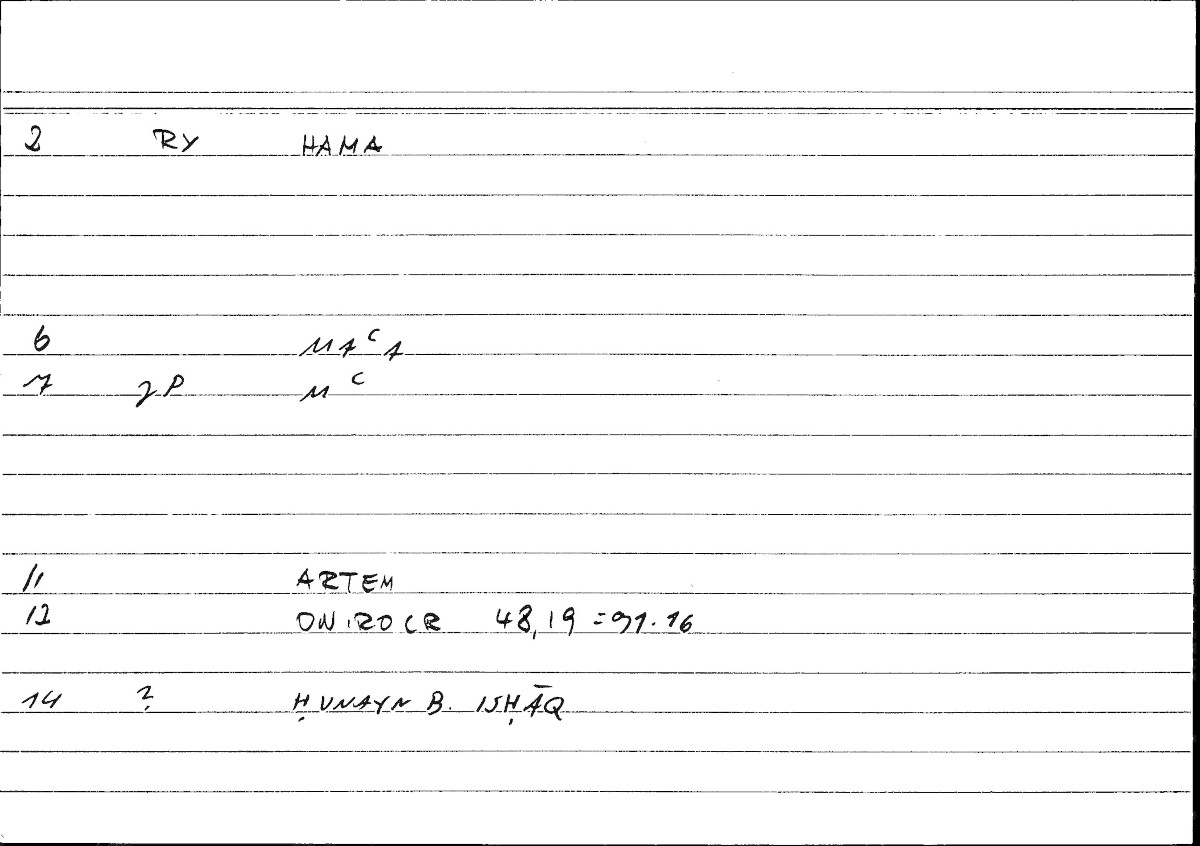 2 RY HAMA
6 MAʿA
7 γP Mʿ
11 ARTEM
12 ONIROCR 48,19 = 91.16
14 ? ḤUNAYN B. ISḤĀQ